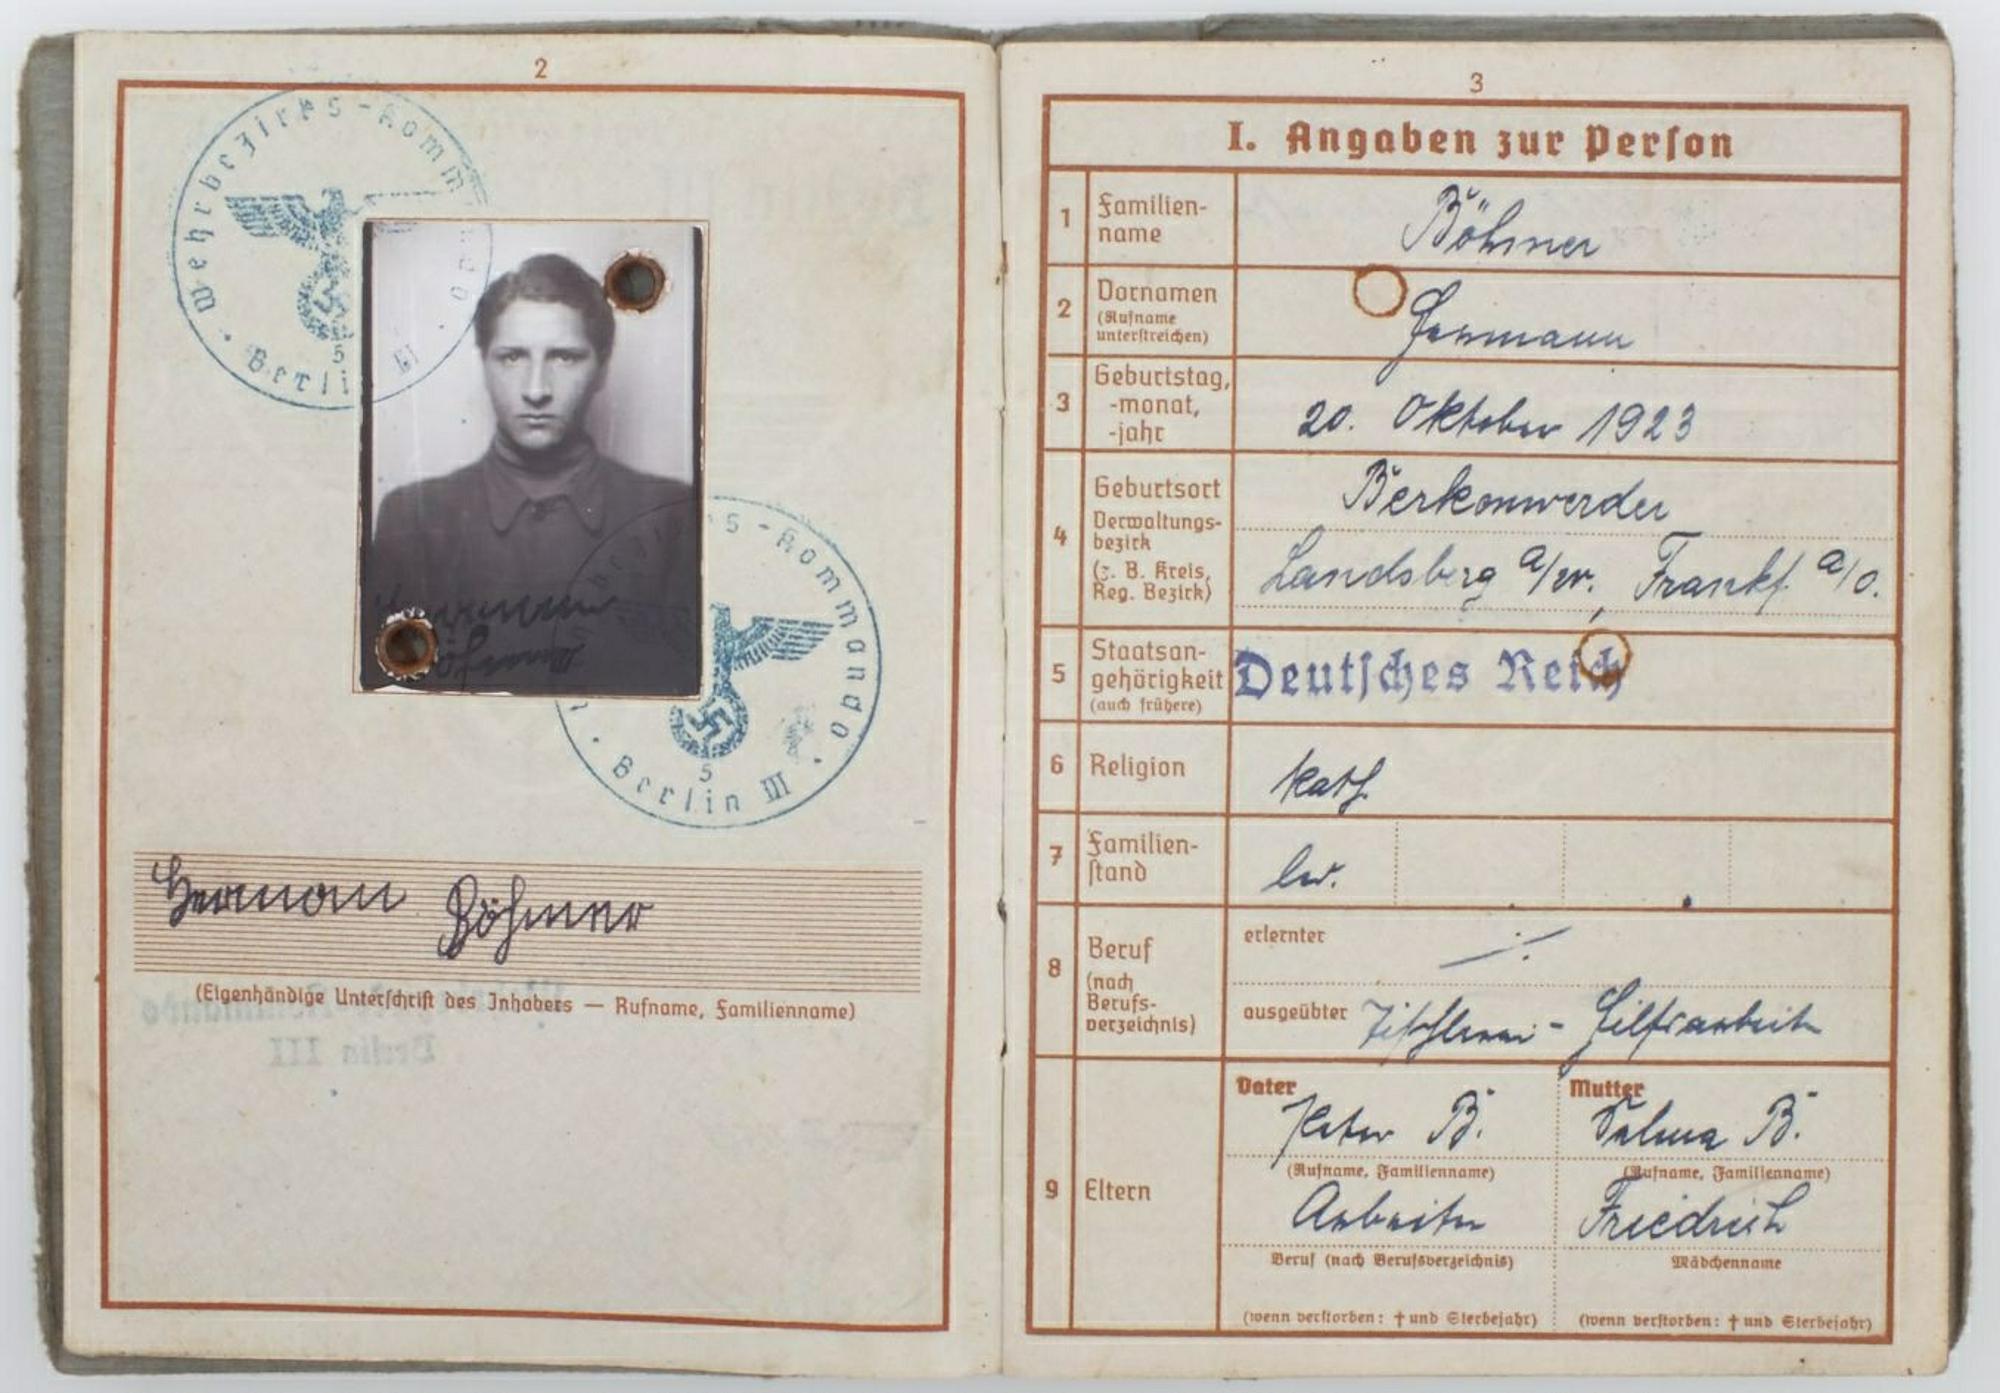 2
Wehrbezirks-Kommando
5
Berlin III
Wehrbezirks-Kommando
5
Berlin III
Hermann Böhmer
(Eigenhändige Unterschrift des Inhabers — Rufname, Familienname)
Berlin III
3
I. Angaben zur Person
1 Familien-
name
Böhmer
2 Vornamen
(Rufname
unterstreichen)
Hermann
3 Geburtstag,
-monat,
-jahr
20. Oktober 1923
4 Geburtsort
Verwaltungs-
bezirk
(z. B. Kreis,
Reg. Bezirk)
Berkenwerder
Landsberg a/W., Frankf. a/O.
5 Staatsan-
gehörigkeit
(auch frühere)
Deutsches Reich
6 Religion
kath.
7 Familien-
stand
led.
8 Beruf
(nach
Berufs-
verzeichnis)
erlernter
ausgeübter Tischlerei-Hilfsarbeiter
9 Eltern
Vater
Peter B.
(Rufname, Familienname)
Arbeiter
Beruf (nach Berufsverzeichnis)
(wenn verstorben: † und Sterbejahr)
Mutter
B.
(Rufname, Familienname)
Friedrich
Mädchenname
(wenn verstorben: † und Sterbejahr)